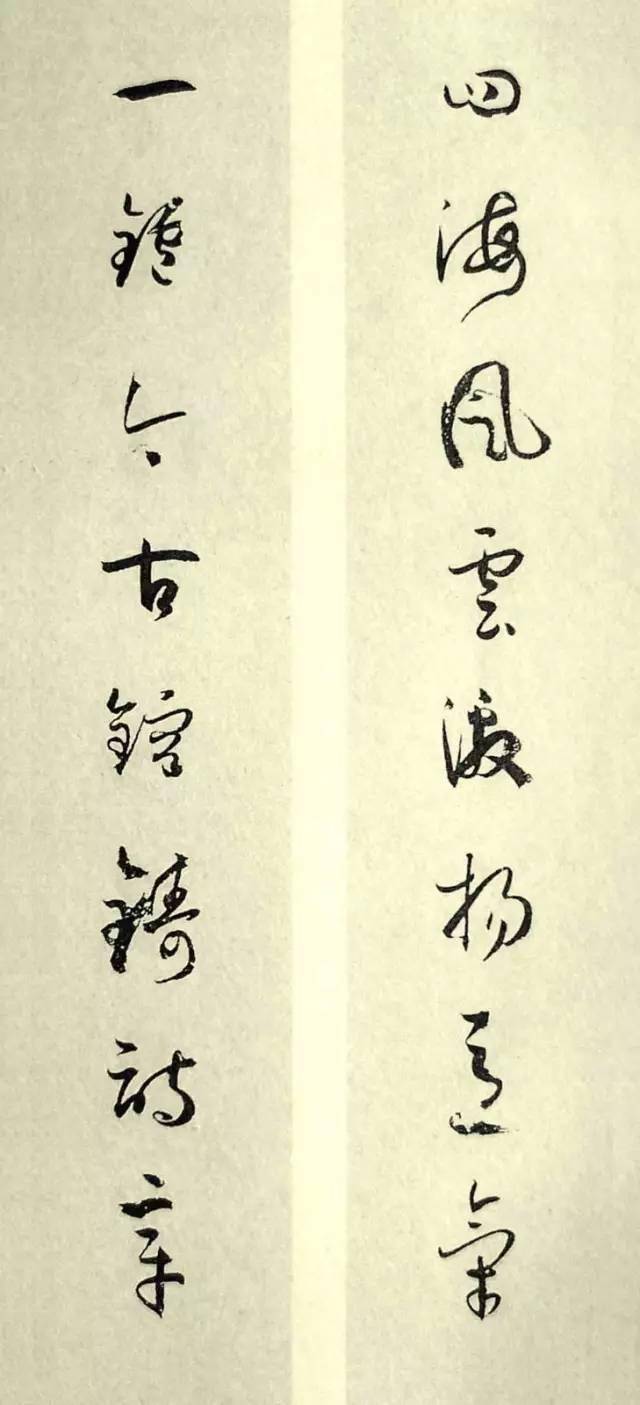 四海風雲激揚意氣
一鑪今古鎔鑄詩章